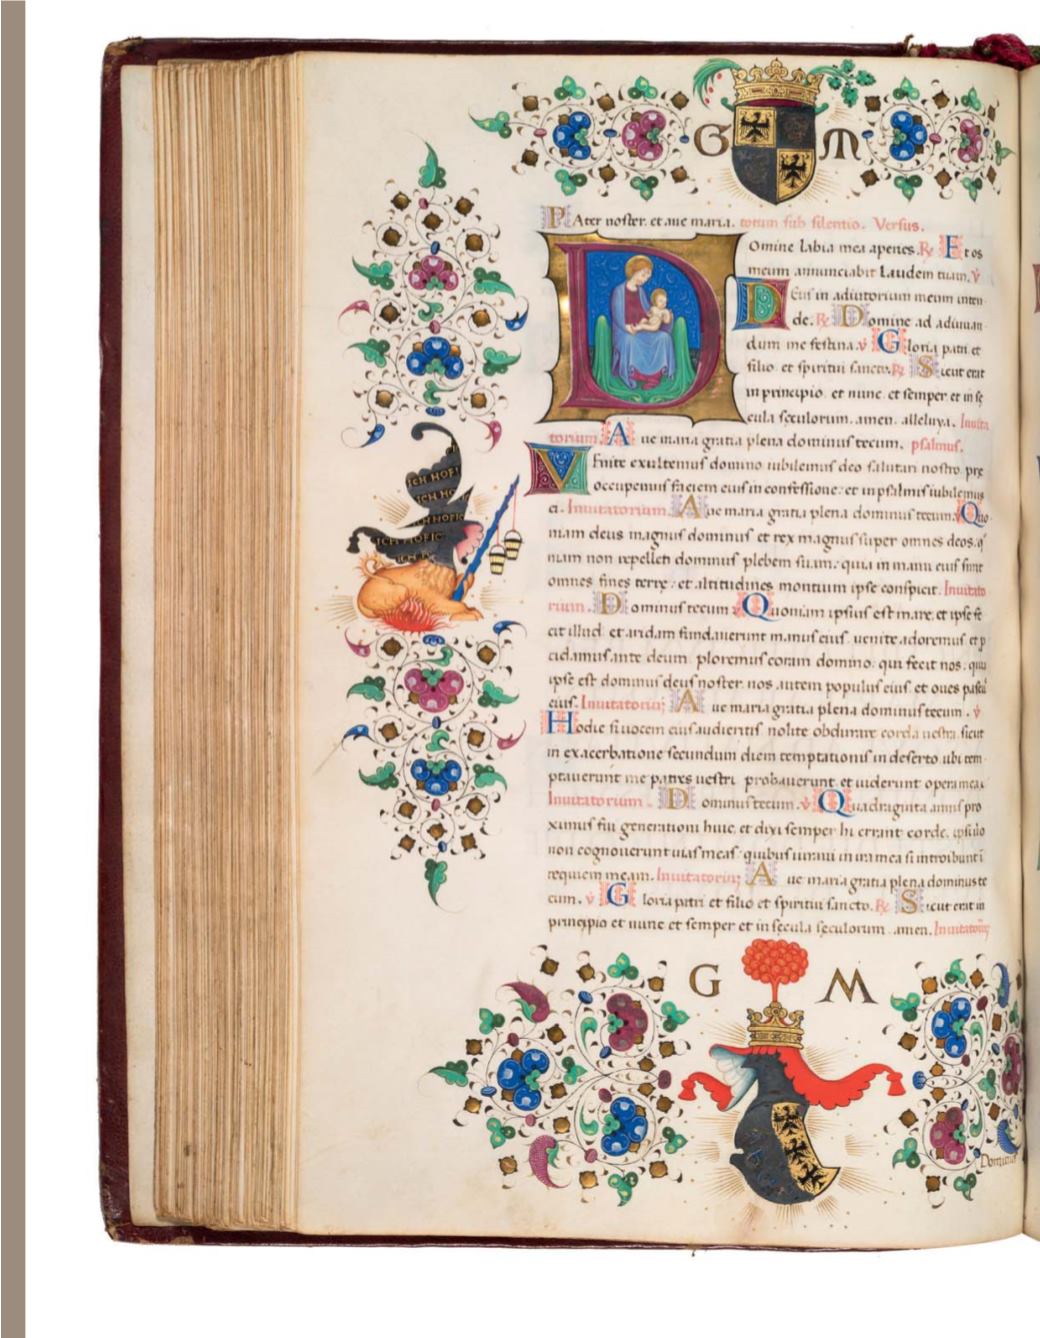 G M
PAter noster. et aue maria. totum sub silentio. Versus.
Domine labia mea aperies. ℞ Et os
meum annunciabit laudem tuam. ℣
Deus in adiutorium meum inten
de. ℞ Domine ad adiuuan
dum me festina. ℣ Gloria patri et
filio et spiritui sancto. ℞ Sicut erat
in principio et nunc et semper et in sę
cula sęculorum. amen. alleluya. Inuita
torium. Aue maria gratia plena dominus tecum. psalmus.
VEnite exultemus domino iubilemus deo salutari nostro. pre
occupemus faciem eius in confessione: et in psalmis iubilemus
ei. Inuitatorium. Aue maria gratia plena dominus tecum. Quo
niam deus magnus dominus et rex magnus super omnes deos. q
niam non repellet dominus plebem suam: quia in manu eius sunt
omnes fines terrę: et altitudines montium ipse conspicit. Inuitato
rium. Dominus tecum. Quoniam ipsius est mare, et ipse fe
cit illud: et aridam fundauerunt manus eius. uenite adoremus et p
cidamus ante deum: ploremus coram domino: qui fecit nos: quia
ipse est dominus deus noster. nos autem populus eius et oues pascuę
eius. Inuitatoriū Aue maria gratia plena dominus tecum. ℣
Hodie si uocem eius audieritis nolite obdurare corda uestra. sicut
in exacerbatione secundum diem temptationis in deserto. ubi tem
ptauerunt me patres uestri probauerunt et uiderunt opera mea.
Inuitatorium. Dominus tecum. ℣ Quadraginta annis pro
ximus fui generationi huic. et dixi semper hi errant corde. ipsi uo
non cognouerunt uias meas: quibus iuraui in ira mea si introibunt ī
requiem meam. Inuitatoriū Aue maria gratia plena dominus te
cum. ℣ Gloria patri et filio et spiritui sancto. ℞ Sicut erat in
principio et nunc et semper et in sęcula sęculorum. amen. Inuitatoriū
ICH HOF
ICH HO
ICH HOF IC
ICH HOF IC
G M